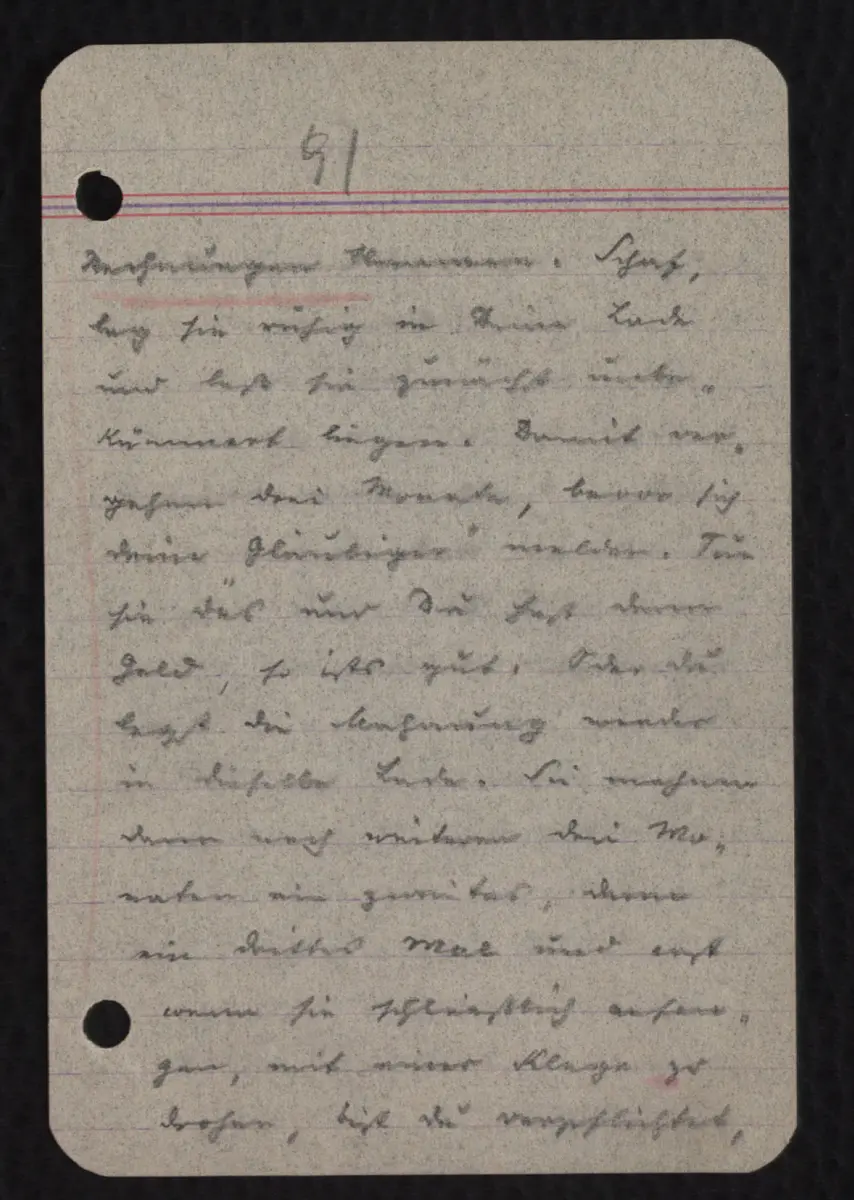 91
Rechnungen kommen. Schaf,
leg sie ruhig in Deine Lade
und laß sie zunächst unbe„
kümmert liegen. Damit ver„
gehen drei Monate, bevor sich
deine Gläubiger melden. Tun
sie das und Du hast dann
Geld, so ists gut. Oder du
legst die Mahnung wieder
in dieselbe Lade. Sie mahnen
dann nach weiteren drei Mo„
naten ein zweites, dann
ein drittes Mal und erst
wenn sie schließlich anfan„
gen, mit einer Klage zu
drohen, bist du verpflichtet,